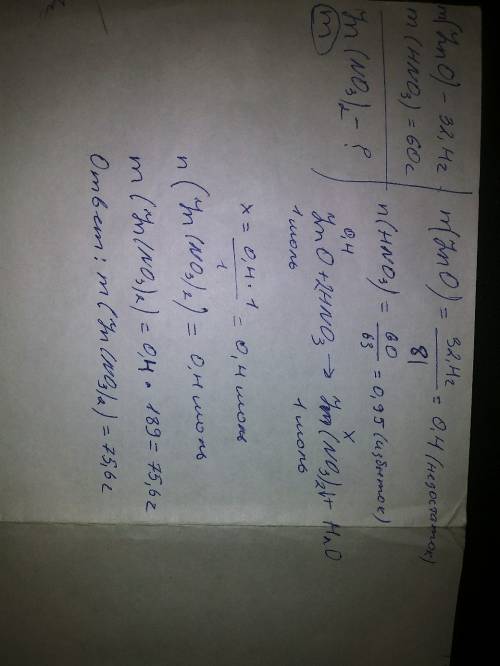 m(ZnO) - 32,4г
m(HNO3) = 60г
m Zn(NO3)2 - ?
n(ZnO) = 32,4г / 81 = 0,4 (недостаток)
n(HNO3) = 60 / 63 = 0,95 (избыток)
0,4 x
ZnO + 2HNO3 → Zn(NO3)2 + H2O
1 моль 1 моль
x = 0,4 · 1 / 1 = 0,4 моль
n(Zn(NO3)2) = 0,4 моль
m(Zn(NO3)2) = 0,4 · 189 = 75,6г
Ответ: m(Zn(NO3)2) = 75,6г